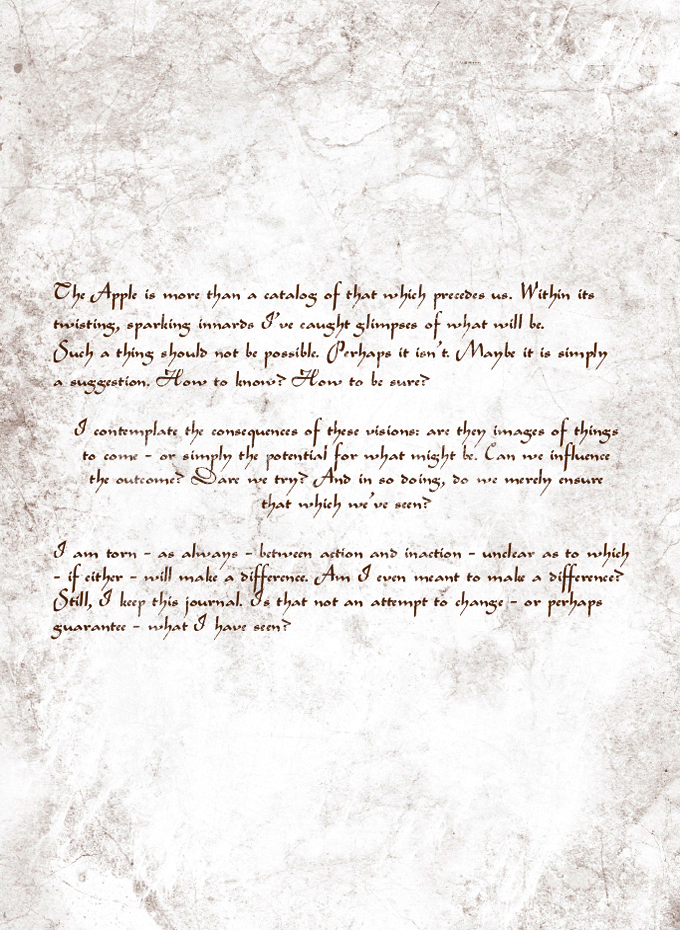 The Apple is more than a catalog of that which precedes us. Within its
twisting, sparking innards I've caught glimpses of what will be.
Such a thing should not be possible. Perhaps it isn't. Maybe it is simply
a suggestion. How to know? How to be sure?
I contemplate the consequences of these visions: are they images of things
to come - or simply the potential for what might be. Can we influence
the outcome? Dare we try? And in so doing, do we merely ensure
that which we've seen?
I am torn - as always - between action and inaction - unclear as to which
- if either - will make a difference. Am I even meant to make a difference?
Still, I keep this journal. Is that not an attempt to change - or perhaps
guarantee - what I have seen?